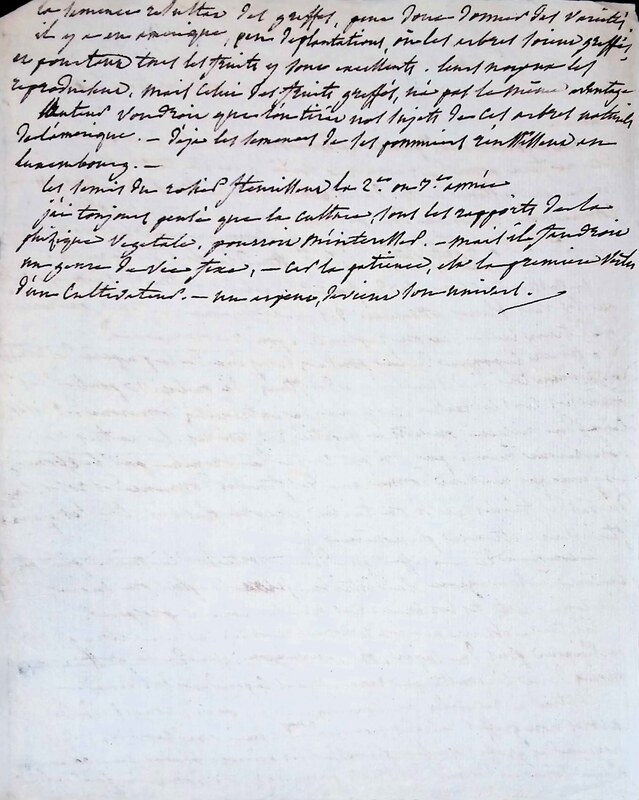 la semence resultat des greffes, peut donc donner des variétés.
il y a en amerique, peu de plantations, où les arbres soient greffés,
et pourtant tous les fruits y sont excellents. leurs noyaux les
reproduisent, mais celui des fruits greffés, n'a pas le même avantage
voudroit que l'on tire nos sujets de ces arbres naturels
de l'amerique. — déja les semences de ses pommiers réussissent au
luxembourg. —
les semis du rosier fleurissent la 2de ou 3e année
j'ai toujours pensé que la culture, sous les rapports de la
phisique vegetale, pourroit m'interesser. — mais il faudroit
un genre de vie fixe, — car la patience, est la premiere vertu
d'un cultivateur. — un arpent, devient son univers.